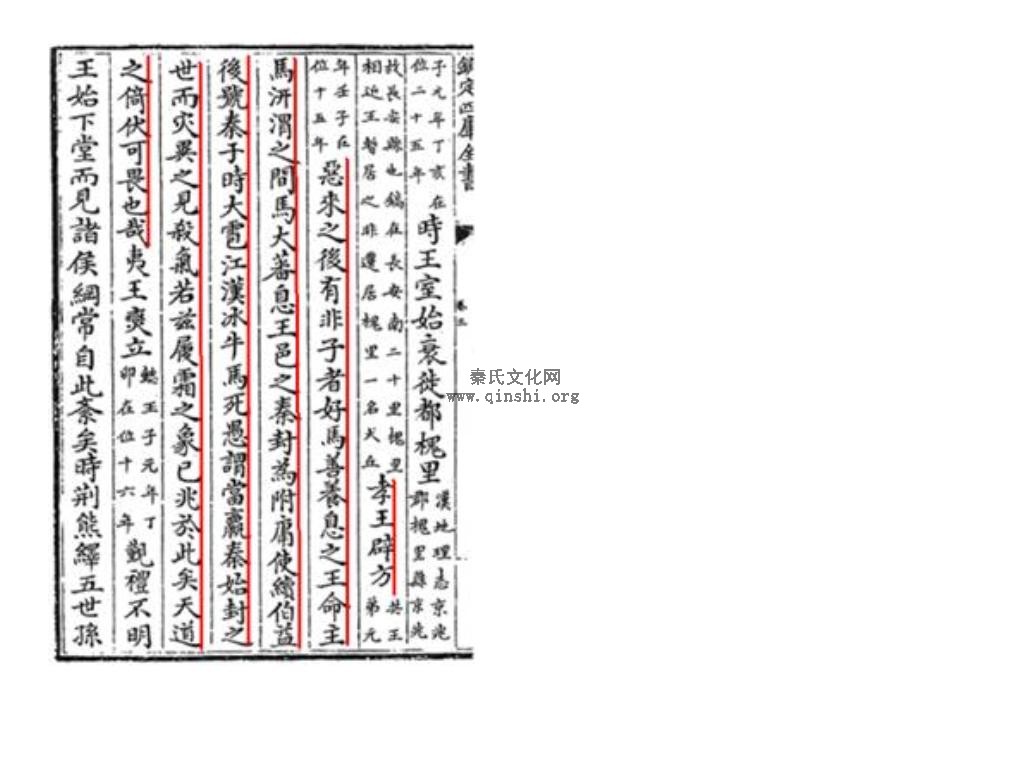 欽定四庫全書
卷三
子元年丁亥在
位二十五年
時王室始衰徙都槐里
漢地理志京兆
郡槐里縣京兆
故長安縣也鎬在長安南二十里槐里
相近王暫居之非遷居槐里一名犬丘
孝王辟方
共王
弟元
年壬子在
位十五年
惡來之後有非子者好馬善養息之王命主
馬汧渭之間馬大蕃息王邑之秦封為附庸使續伯益
後號秦于時大雹江漢冰牛馬死愚謂當嬴秦始封之
世而災異之見殺氣若茲履霜之象已兆於此矣天道
之倚伏可畏也哉夷王燮立
懿王子元年丁
卯在位十六年
覲禮不明
王始下堂而見諸侯綱常自此紊矣時荆熊繹五世孫
秦氏文化网
www.qinshi.org